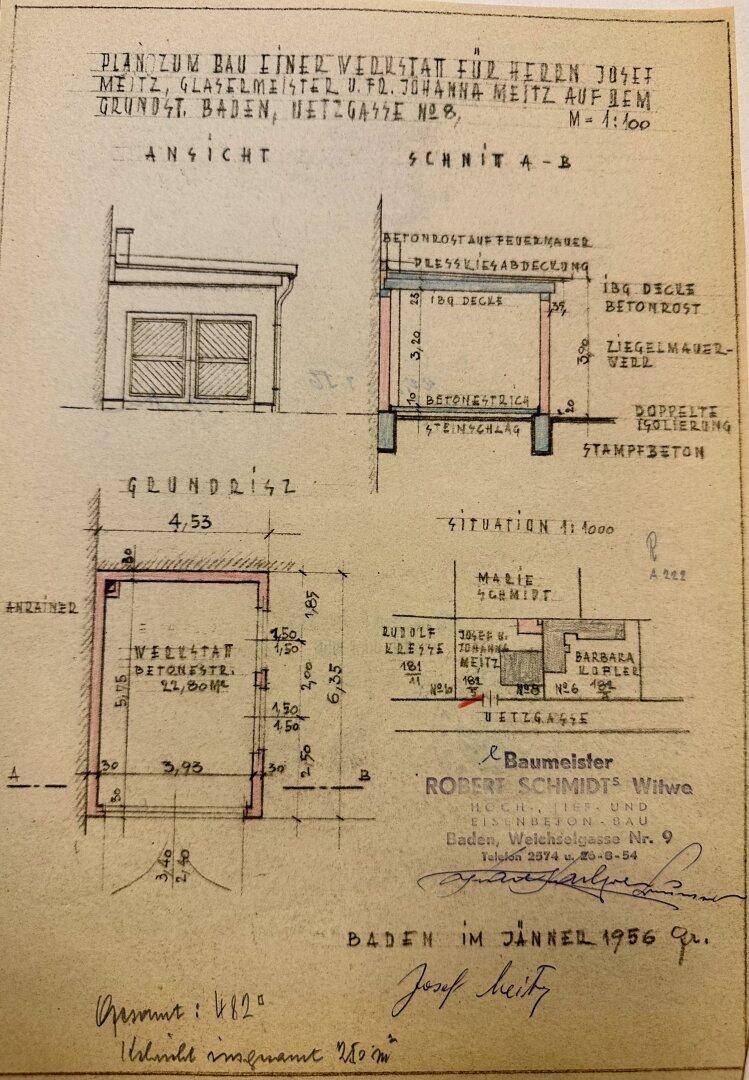 PLAN ZUM BAU EINER WERKSTATT FÜR HERRN JOSEF
MEITZ, GLASERMEISTER U. FR. JOHANNA MEITZ AUF DEM
GRUNDST. BADEN, UETZGASSE No 8,
M = 1:100
ANSICHT
SCHNITT A-B
BETONROST AUF FEUERMAUER
PRESSKIESABDECKUNG
IBQ DECKE
IBQ DECKE
BETONROST
ZIEGELMAUER-
WERK
25
35
3,20
3,90
BETONESTRICH
10
20
STEINSCHLAG
DOPPELTE
ISOLIERUNG
STAMPFBETON
GRUNDRISZ
4,53
30
ANRAINER
WERKSTATT
BETONESTR.
22,80 M²
5,75
1,85
1,50
1,50
2,00
6,35
1,50
1,50
2,50
A
30
3,93
30
B
30
3,40
2,40
SITUATION 1:1000
A 222
MARIE
SCHMIDT
RUDOLF
KRESSE
181
11
No 10
JOSEF U.
JOHANNA
MEITZ
No 8
No 6
BARBARA
KOFLER
UETZGASSE
Baumeister
ROBERT SCHMIDTS Witwe
HOCH-, TIEF- UND
EISENBETON-BAU
Baden, Weichselgasse Nr. 9
Telefon 2574 u. 26-8-54
BADEN IM JÄNNER 1956
Josef Meitz
Gesamt : 482
insgesamt 280 m²